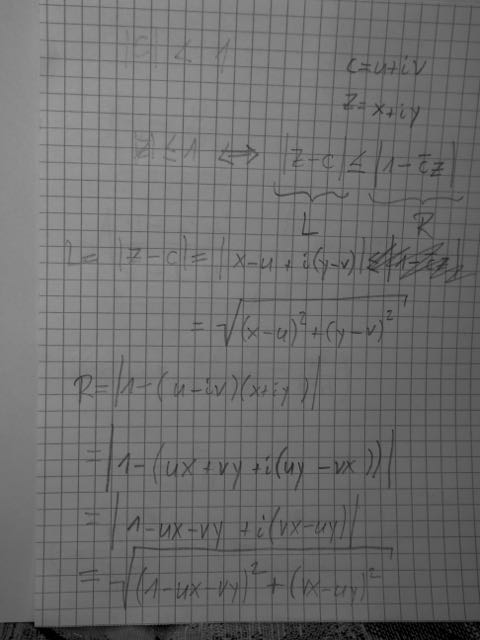 |c| < 1
c=u+iv
z=x+iy
|z| ≤ 1 ⟺ |z-c| ≤ |1-c̄z|
L R
L= |z-c| = |x-u + i(y-v)|
= √((x-u)²+(y-v)²)
R= |1-(u-iv)(x+iy)|
= |1-(ux+vy+i(uy-vx))|
= |1-ux-vy +i(vx-uy)|
= √((1-ux-vy)²+(vx-uy)²)